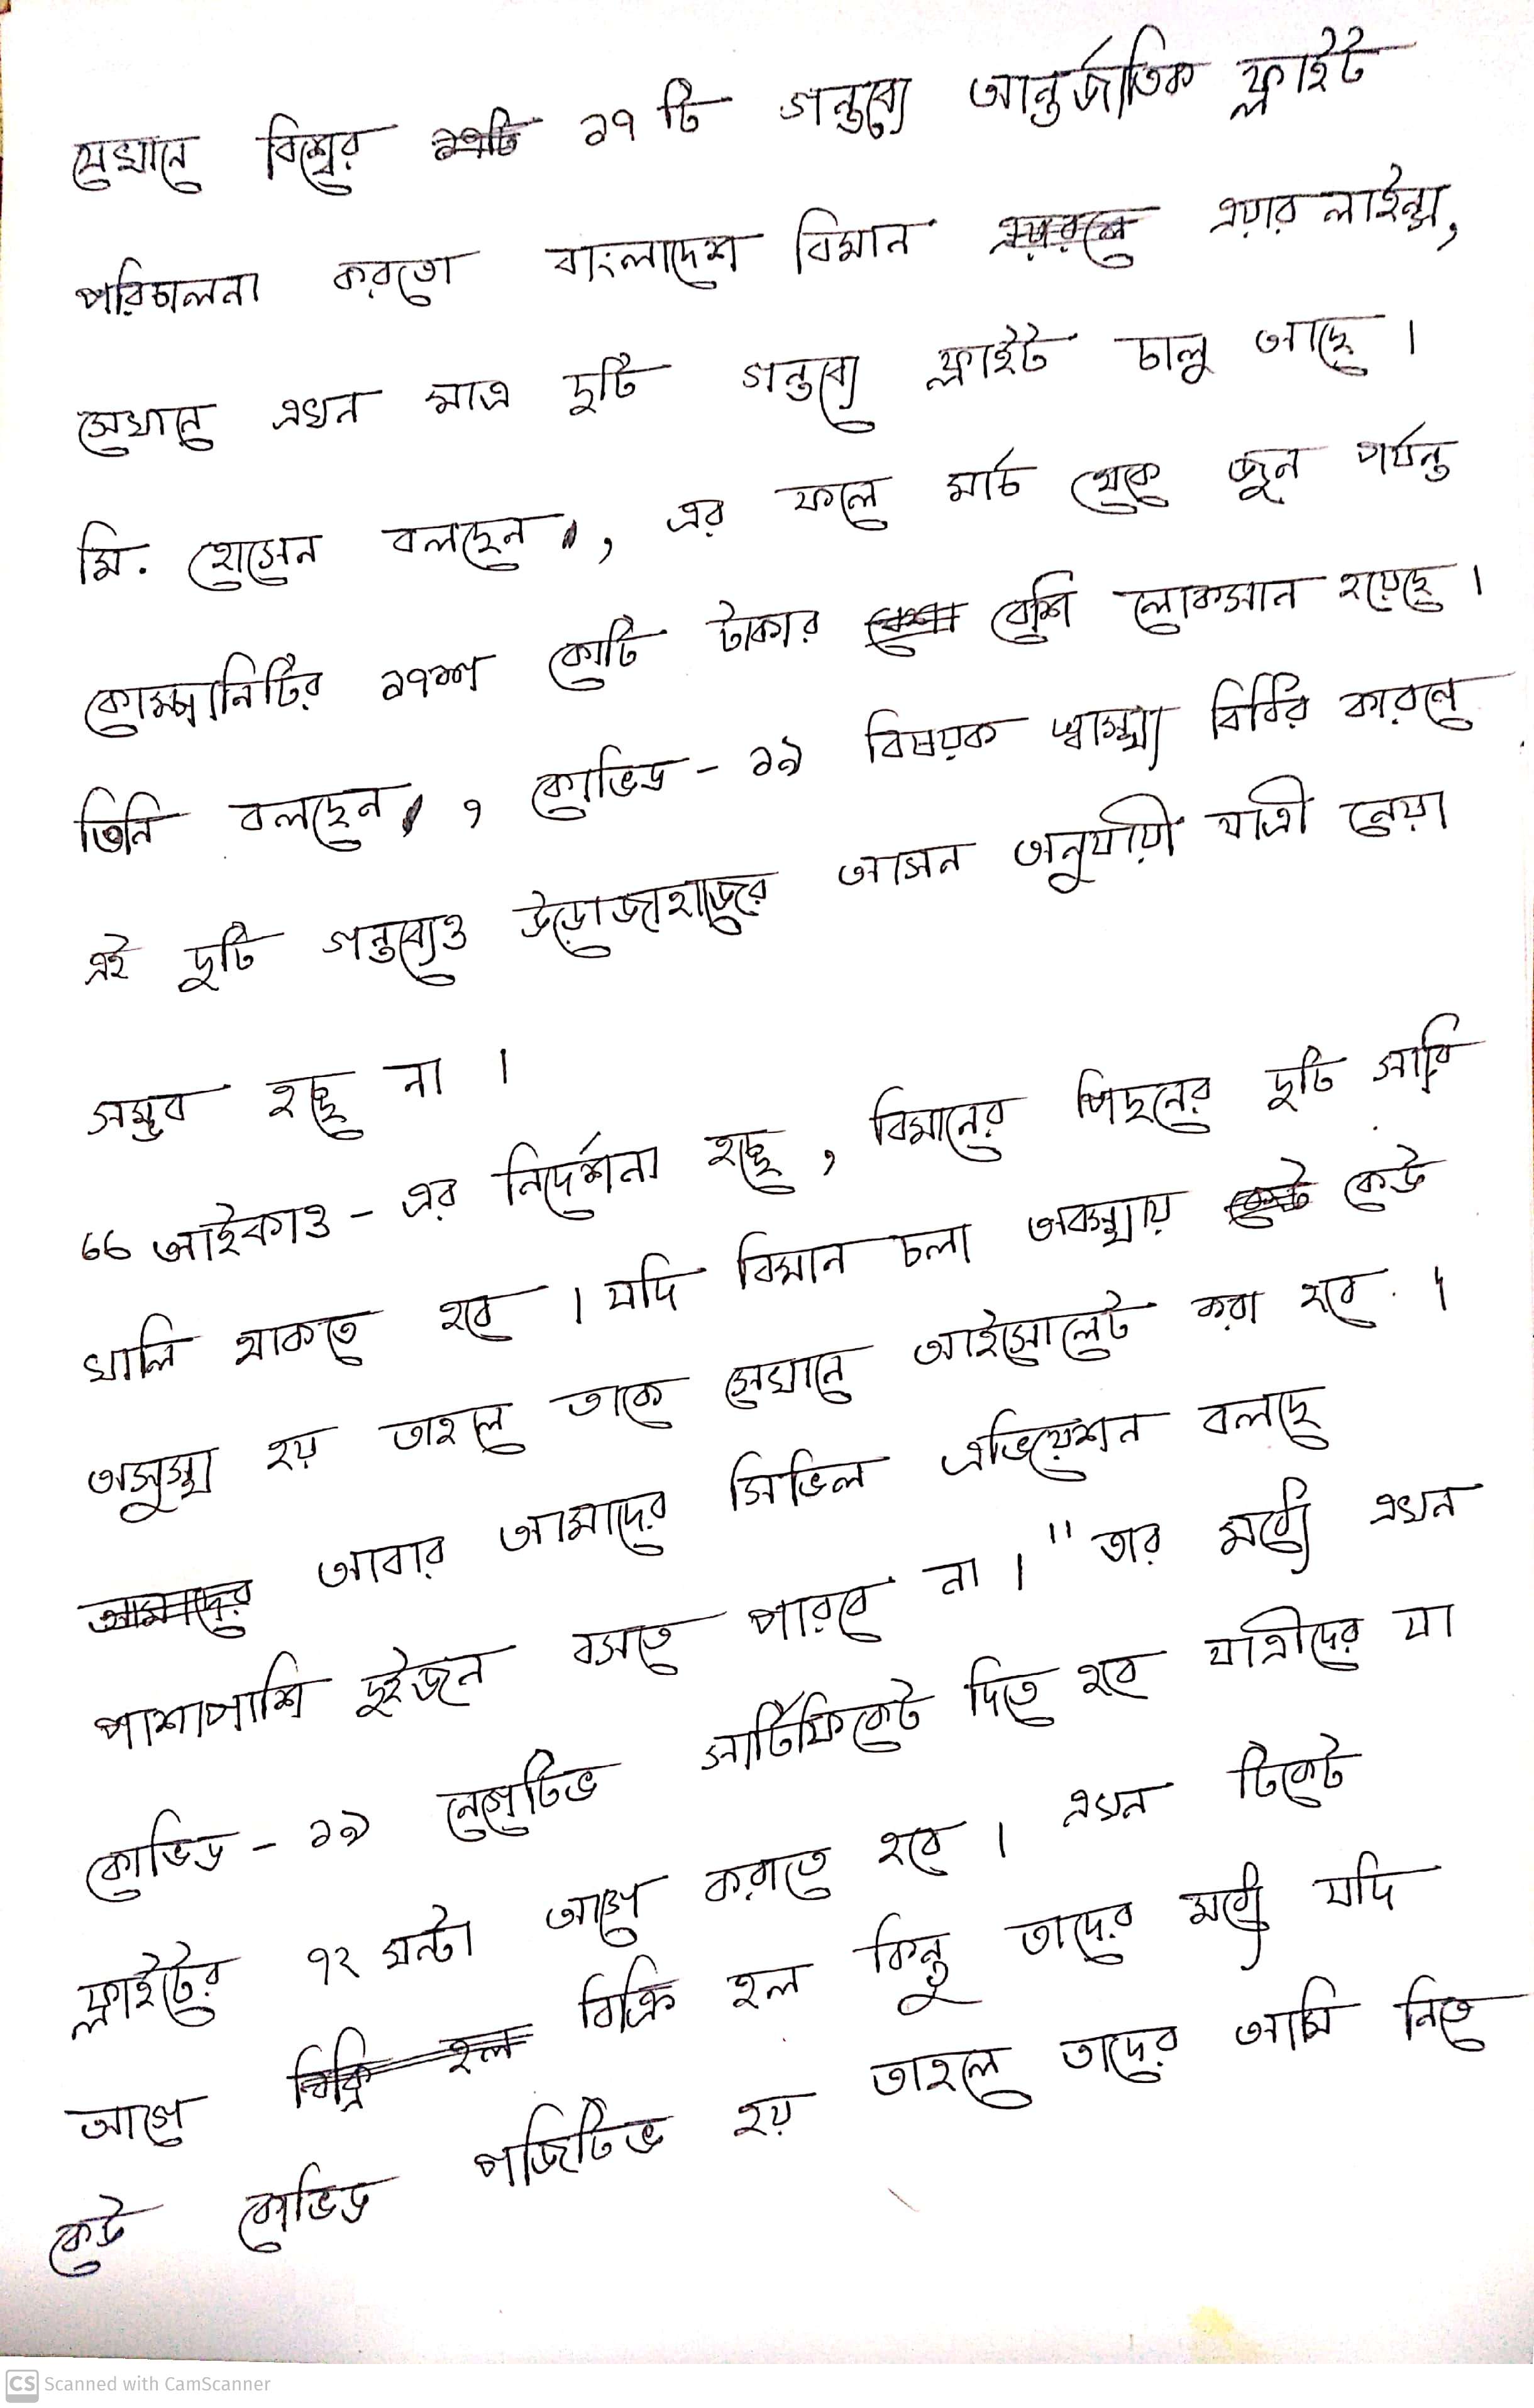 যেখানে বিশ্বের ১৭টি ১৭ টি গন্তব্যে আন্তর্জাতিক ফ্লাইট
পরিচালনা করতো বাংলাদেশ বিমান এয়ারলাইন্স,
সেখানে এখন মাত্র দুটি গন্তব্যে ফ্লাইট চালু আছে।
মি. হোসেন বলছেন, এর ফলে মার্চ থেকে জুন পর্যন্ত
কোম্পানিটির ১৭শ কোটি টাকার বেশি লোকসান হয়েছে।
তিনি বলছেন, কোভিড - ১৯ বিষয়ক স্বাস্থ্য বিধির কারণে
এই দুটি গন্তব্যেও উড়োজাহাজের আসন অনুযায়ী যাত্রী নেয়া
সম্ভব হচ্ছে না।
“আইকাও - এর নির্দেশনা হচ্ছে, বিমানের পিছনের দুটি সারি
খালি থাকতে হবে। যদি বিমান চলা অবস্থায় কেউ
অসুস্থ হয় তাহলে তাকে সেখানে আইসোলেট করা হবে।
আমাদের আবার আমাদের সিভিল এভিয়েশন বলছে
পাশাপাশি দুইজন বসতে পারবে না।" তার মধ্যে এখন
কোভিড - ১৯ নেগেটিভ সার্টিফিকেট দিতে হবে যাত্রীদের যা
ফ্লাইটের ৭২ ঘন্টা আগে করাতে হবে। এখন টিকেট
আগে বিক্রি হল কিন্তু তাদের মধ্যে যদি
কেউ কোভিড পজিটিভ হয় তাহলে তাদের আমি নিতে
CS Scanned with CamScanner